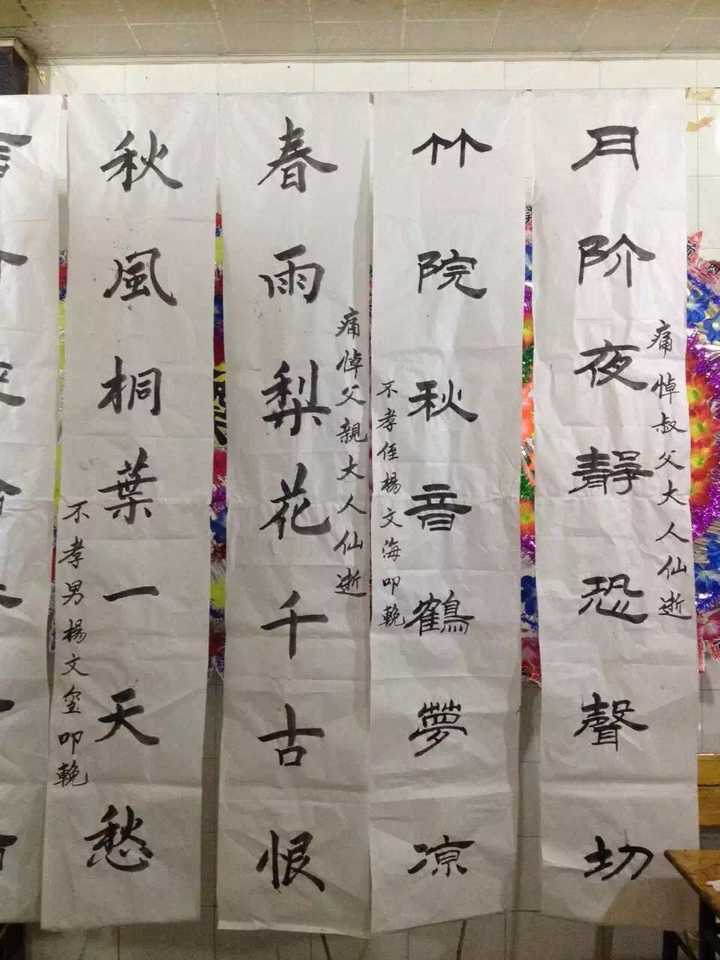 痛悼叔父大人仙逝
月阶夜靜恐聲切
竹院秋音鶴夢凉
不孝侄楊文海叩輓
痛悼父親大人仙逝
春雨梨花千古恨
秋風桐葉一天愁
不孝男楊文空叩輓